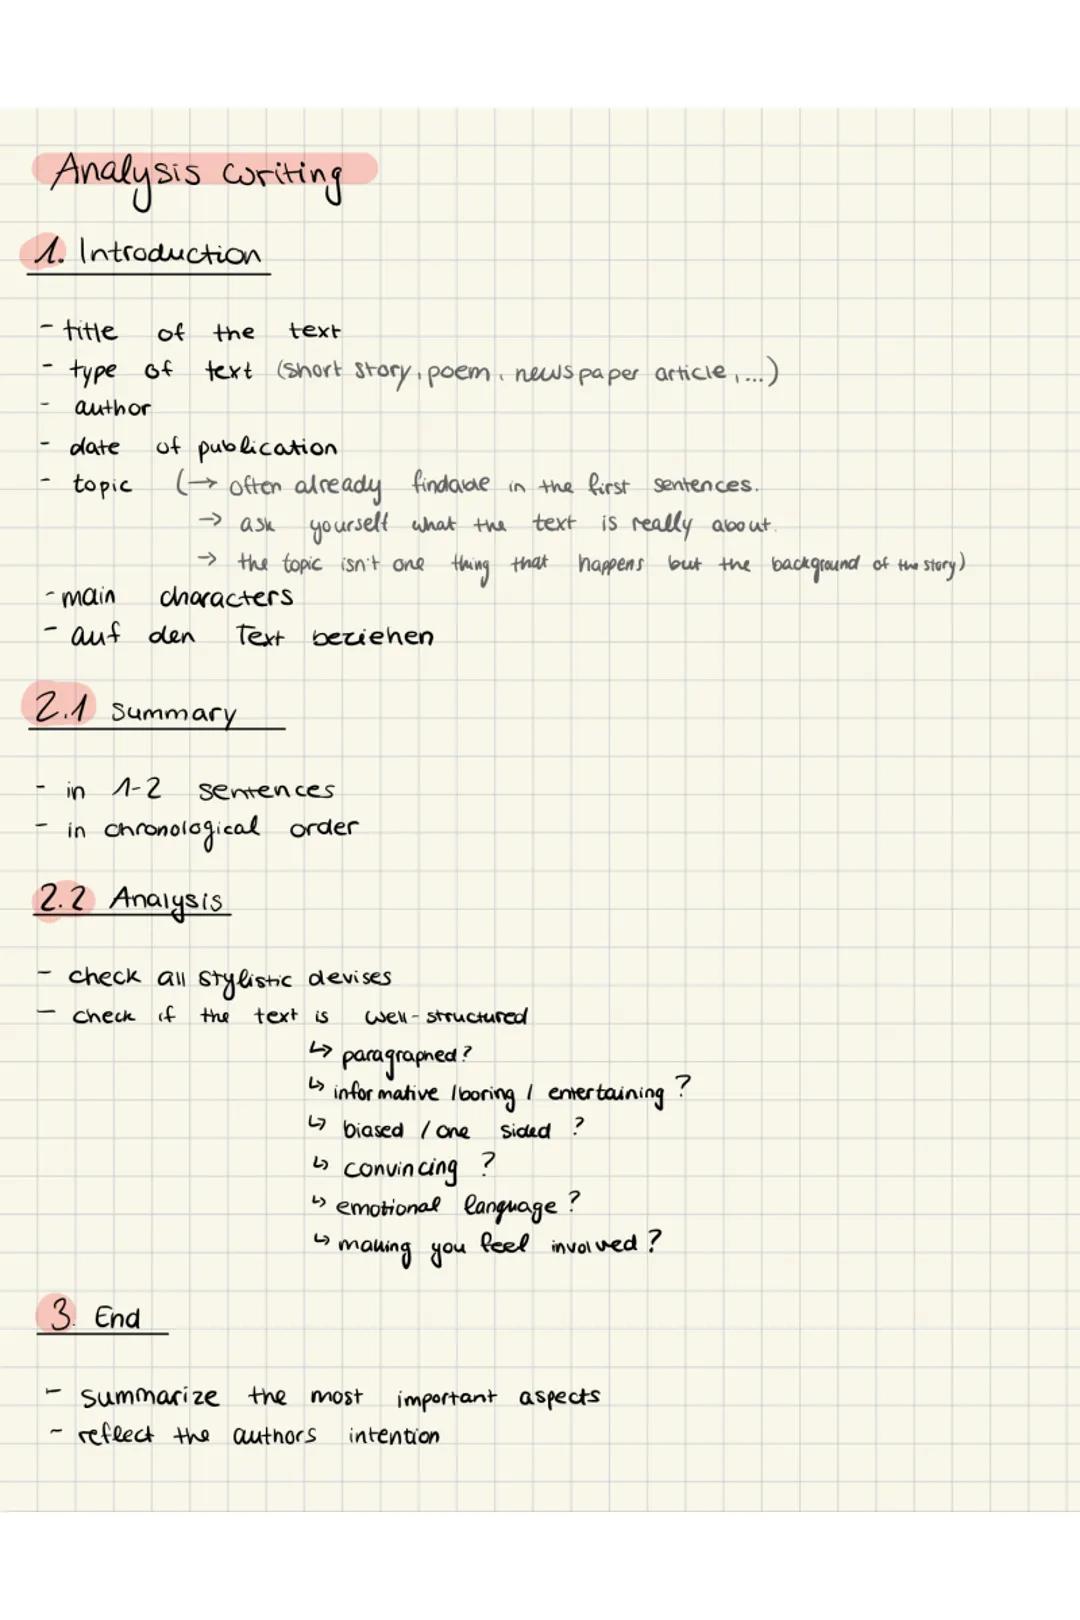 Analysis writing
1. Introduction
- title of the text
- type of text (short story, poem, newspaper article, ...)
- author
- date of publication
- topic (→ often already findable in the first sentences.
→ ask yourself what the text is really about.
→ the topic isn't one thing that happens but the background of the story)
- main characters
- auf den Text beziehen
2.1 Summary
- in 1-2 sentences
- in chronological order
2.2 Analysis
- check all stylistic devises
- check if the text is well-structured
↳ paragraphed?
↳ informative / boring / entertaining?
↳ biased / one sided?
↳ convincing?
↳ emotional language?
↳ making you feel involved?
3. End
- summarize the most important aspects
- reflect the authors intention